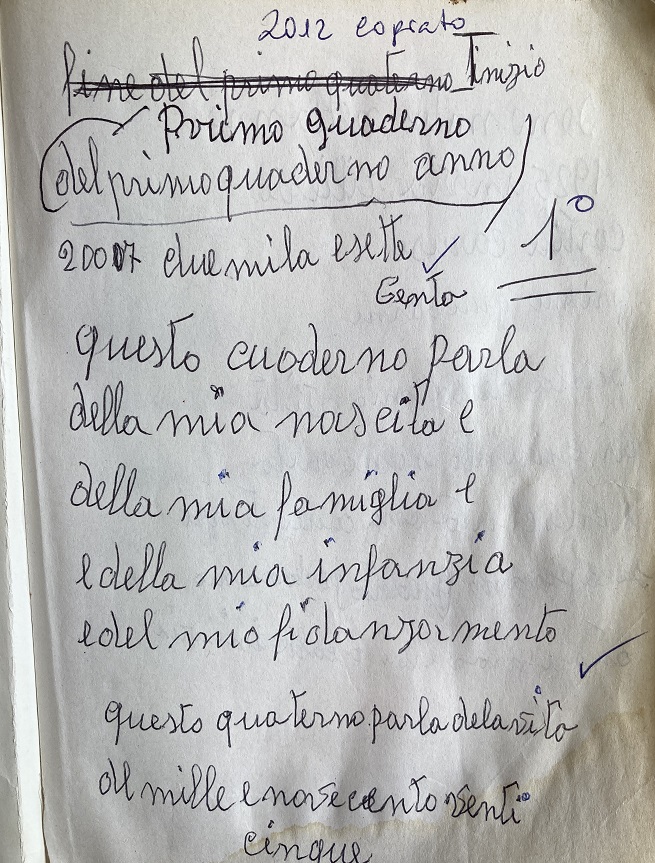 2012 copiato
fine del primo quaterno Iinizio
Primo quaderno
del primo quaderno anno
1º
2007 duemila e sette
Genta
questo cuoderno parla
della mia nascita e
della mia famiglia e
e della mia infanzia
e del mio fidanzormento
questo quaterno parla dela vita
del mille e novecento venti
cinque